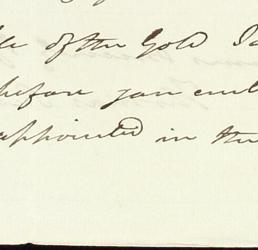 of the Gold
before you
appointed in the